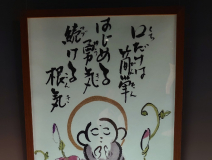 口だけは簡単
はじめる勇気
続ける根気